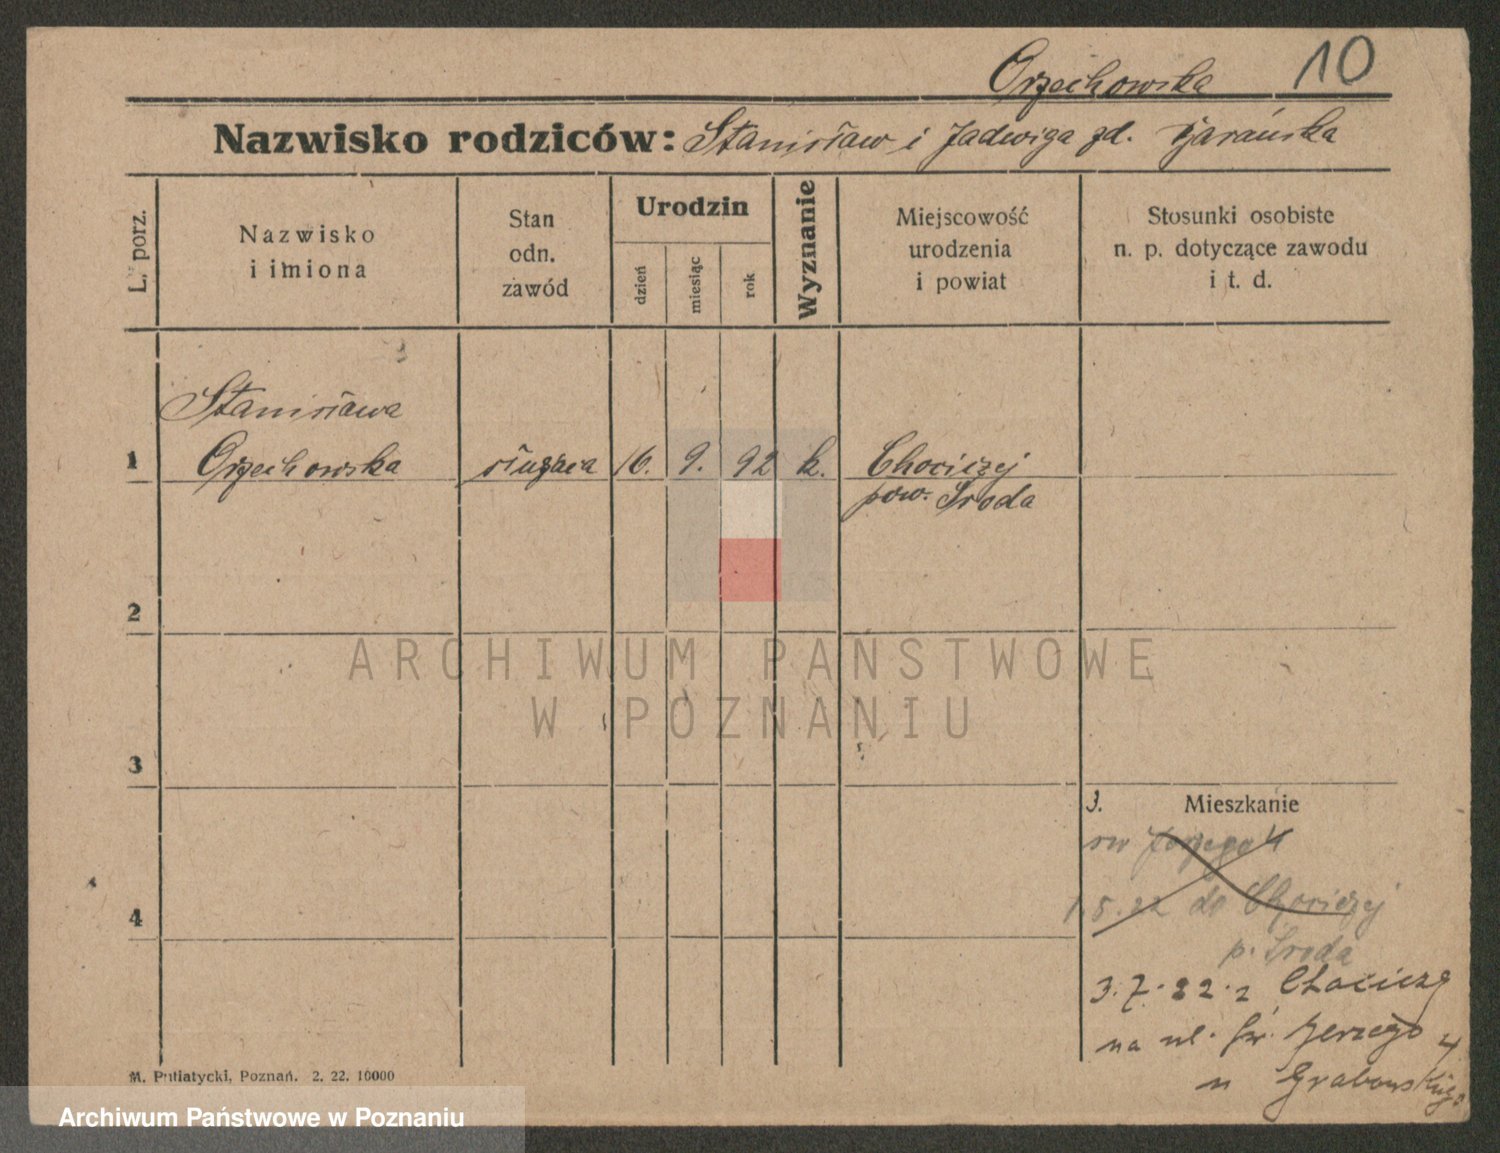 Orzechowska 10
Nazwisko rodziców: Stanisław i Jadwiga zd. Żarańska
L. porz.
Nazwisko
i imiona
Stan
odn.
zawód
Urodzin
dzień
miesiąc
rok
Wyznanie
Miejscowość
urodzenia
i powiat
Stosunki osobiste
n. p. dotyczące zawodu
i t. d.
Stanisława
1 Orzechowska służąca 16. 9. 92 k. Chociczej
pow. Środa
2
ARCHIWUM PAŃSTWOWE
W POZNANIU
3
3. Mieszkanie
św Jerzego 4
4
1.5.22 do Chociczej
p. Środa
3.7.22. z Chociczy
na ul. Św. Jerzego 4
u Grabowskiego
M. Putiatycki, Poznań. 2. 22. 10000
Archiwum Państwowe w Poznaniu